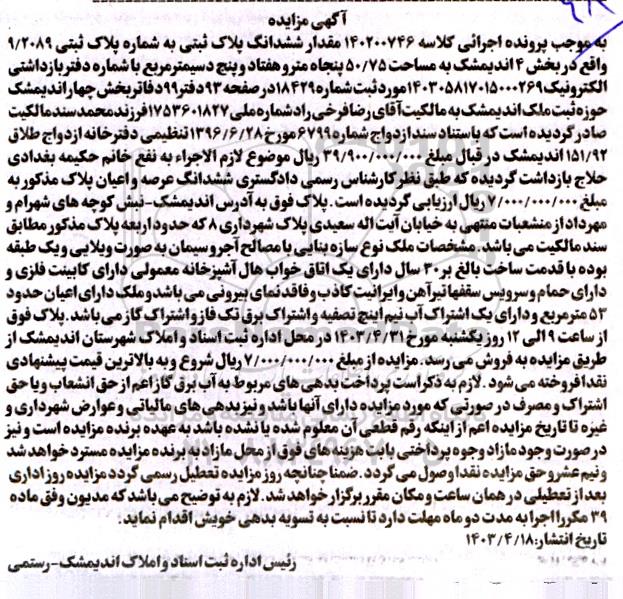 آگهی مزایده
به موجب پرونده اجرائی کلاسه ۱۴۰۲۰۰۷۴۶ مقدار ششدانگ پلاک ثبتی به شماره پلاک ثبتی ۹/۲۰۸۹
واقع در بخش ۴ اندیمشک به مساحت ۵۰/۷۵ پنجاه متر و هفتاد و پنج دسیمتر مربع با شماره دفتر بازداشتی
الکترونیک ۱۴۰۳۰۵۸۱۷۰۱۵۰۰۰۲۶۹ مورد ثبت شماره ۱۸۴۲۹ در صفحه ۹۳ دفتر ۹۹ دفاتر بخش چهار اندیمشک
حوزه ثبت ملک اندیمشک به مالکیت آقای رضا فرخی راد شماره ملی ۱۷۵۳۶۰۱۸۲۷ فرزند محمد سند مالکیت
صادر گردیده است که باستناد سند ازدواج شماره ۶۷۹۹ مورخ ۱۳۹۶/۶/۲۸ تنظیمی دفترخانه ازدواج طلاق
۱۵۱/۹۲ اندیمشک در قبال مبلغ ۳۹/۹۰۰/۰۰۰/۰۰۰ ریال موضوع لازم الاجراء به نفع خانم حکیمه بغدادی
حلاج بازداشت گردیده که طبق نظر کارشناس رسمی دادگستری ششدانگ عرصه و اعیان پلاک مذکور به
مبلغ ۷/۰۰۰/۰۰۰/۰۰۰ ریال ارزیابی گردیده است. پلاک فوق به آدرس اندیمشک-نبش کوچه های شهرام و
مهرداد از منشعبات منتهی به خیابان آیت اله سعیدی پلاک شهرداری ۸ که حدود اربعه پلاک مذکور مطابق
سند مالکیت می باشد. مشخصات ملک نوع سازه بنایی با مصالح آجر و سیمان به صورت ویلایی و یک طبقه
بوده با قدمت ساخت بالغ بر ۳۰ سال دارای یک اتاق خواب هال آشپزخانه معمولی دارای کابینت فلزی و
دارای حمام و سرویس سقفها تیرآهن و ایرانیت کاذب و فاقد نمای بیرونی می باشد و ملک دارای اعیان حدود
۵۳ متر مربع و دارای یک اشتراک آب نیم اینچ تصفیه و اشتراک برق تک فاز و اشتراک گاز می باشد. پلاک فوق
از ساعت ۹ الی ۱۲ روز یکشنبه مورخ ۱۴۰۳/۴/۳۱ در محل اداره ثبت اسناد و املاک شهرستان اندیمشک از
طریق مزایده به فروش می رسد. مزایده از مبلغ ۷/۰۰۰/۰۰۰/۰۰۰ ریال شروع و به بالاترین قیمت پیشنهادی
نقدا فروخته می شود. لازم به ذکر است پرداخت بدهی های مربوط به آب برق گاز اعم از حق انشعاب و یا حق
اشتراک و مصرف در صورتی که مورد مزایده دارای آنها باشد و نیز بدهی های مالیاتی و عوارض شهرداری و
غیره تا تاریخ مزایده اعم از اینکه رقم قطعی آن معلوم شده یا نشده باشد به عهده برنده مزایده است و نیز
در صورت وجود مازاد وجوه پرداختی بابت هزینه های فوق از محل مازاد به برنده مزایده مسترد خواهد شد
و نیم عشر و حق مزایده نقدا وصول می گردد. ضمنا چنانچه روز مزایده تعطیل رسمی گردد مزایده روز اداری
بعد از تعطیلی در همان ساعت و مکان مقرر برگزار خواهد شد. لازم به توضیح می باشد که مدیون وفق ماده
۳۹ مکرر اجرا به مدت دو ماه مهلت دارد تا نسبت به تسویه بدهی خویش اقدام نماید.
تاریخ انتشار: ۱۴۰۳/۴/۱۸
رئیس اداره ثبت اسناد و املاک اندیمشک-رستمی